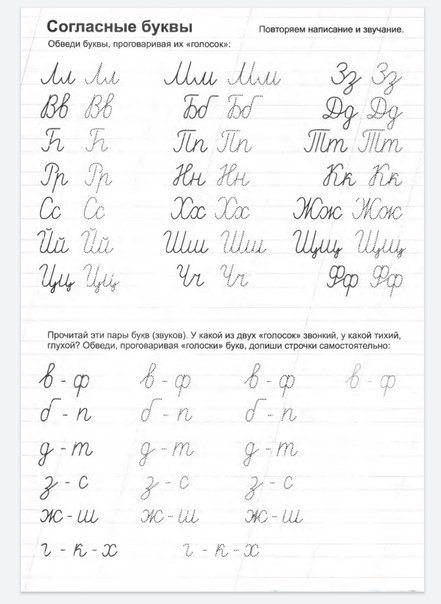 Согласные буквы
Повторяем написание и звучание.
Обведи буквы, проговаривая их «голосок»:
Лл Лл Мм Мм Зз Зз
Вв Вв Бб Бб Дд Дд
Гг Гг Пп Пп Тт Тт
Рр Рр Нн Нн Кк Кк
Сс Сс Хх Хх Жж Жж
Йй Йй Шш Шш Щщ Щщ
Цц Цц Чч Чч Фф Фф
Прочитай эти пары букв (звуков). У какой из двух «голосок» звонкий, у какой тихий,
глухой? Обведи, проговаривая «голоски» букв, допиши строчки самостоятельно:
в - ф в - ф в - ф в - ф
б - п б - п б - п
д - т д - т д - т
з - с з - с з - с
ж - ш ж - ш ж - ш
г - к - х г - к - х